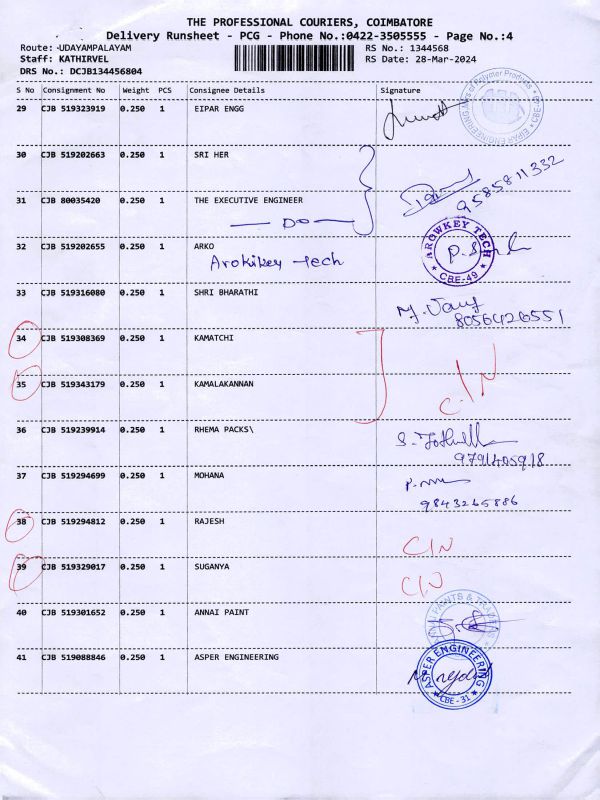 THE PROFESSIONAL COURIERS, COIMBATORE
Delivery Runsheet - PCG - Phone No.:0422-3505555 - Page No.:4
Route: UDAYAMPALAYAM RS No.: 1344568
Staff: KATHIRVEL RS Date: 28-Mar-2024
DRS No.: DCJB134456804
S No Consignment No Weight PCS Consignee Details Signature
29 CJB 519323919 0.250 1 EIPAR ENGG
30 CJB 519202663 0.250 1 SRI HER
9585811332
31 CJB 80035420 0.250 1 THE EXECUTIVE ENGINEER
DO
32 CJB 519202655 0.250 1 ARKO
Arokikey tech
AROWKEY TECH
CBE-49
33 CJB 519316080 0.250 1 SHRI BHARATHI
8056426551
34 CJB 519308369 0.250 1 KAMATCHI
35 CJB 519343179 0.250 1 KAMALAKANNAN
C/N
36 CJB 519239914 0.250 1 RHEMA PACKS\
9791405918
37 CJB 519294699 0.250 1 MOHANA
9843265886
38 CJB 519294812 0.250 1 RAJESH
C/N
39 CJB 519329017 0.250 1 SUGANYA
C/N
40 CJB 519301652 0.250 1 ANNAI PAINT
41 CJB 519088846 0.250 1 ASPER ENGINEERING
ASPER ENGINEERING
CBE-31